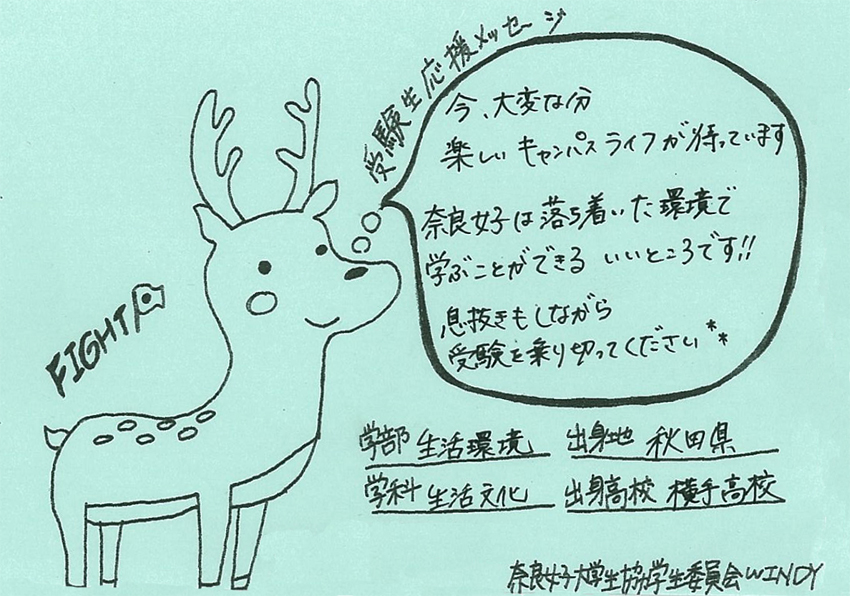 受験生応援メッセージ
今、大変な分
楽しいキャンパスライフが待っています
奈良女子は落ち着いた環境で
学ぶことができる いいところです!!
息抜きもしながら
受験を乗り切ってください**
FIGHT
学部 生活環境 出身地 秋田県
学科 生活文化 出身高校 横手高校
奈良女子大学生協学生委員会WINDY